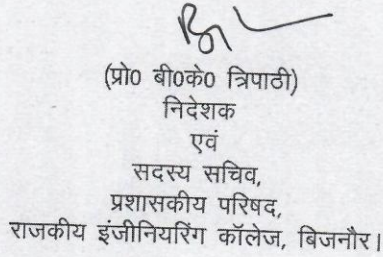 (प्रो0 बी0के0 त्रिपाठी)
निदेशक
एवं
सदस्य सचिव,
प्रशासकीय परिषद,
राजकीय इंजीनियरिंग कॉलेज, बिजनौर।